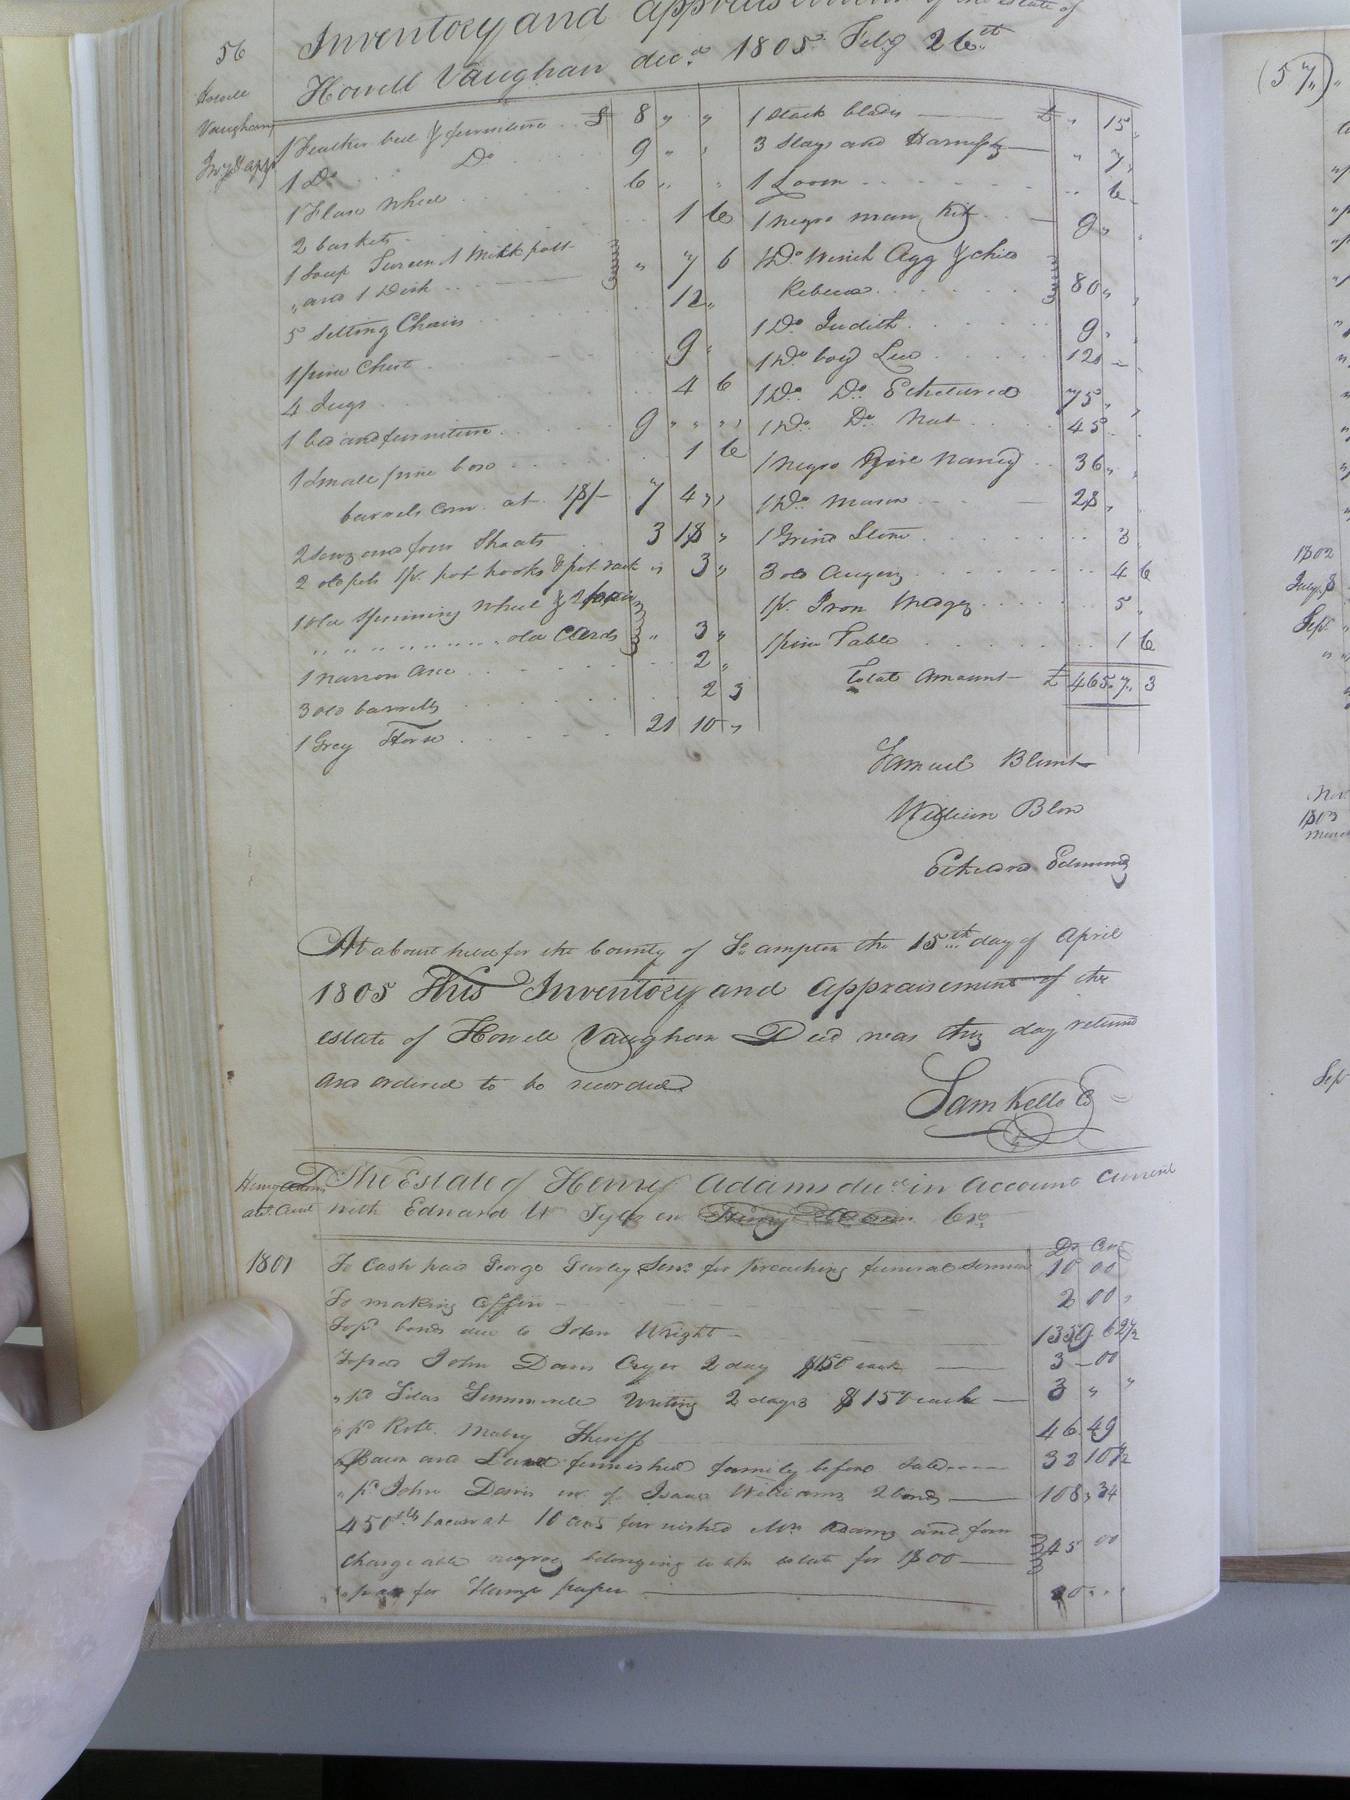 56
Inventory and appraisement of the estate of
Howell Vaughan dec.d 1805 Feby 26th
Howell
Vaughan
Inv & app
1 Feather bed & furniture £ 8 " "
1 Do Do 9 " "
1 Flax Wheel 6 " "
2 baskets 1 6
1 Soup Tureen 1 Milk pott
" and 1 Dish " 7 6
5 Setting Chairs 12 "
1 pine Chest 9 "
4 Jugs 4 6
1 bed and furniture 9 " "
1 Small pine box 1 6
barrels corn at 18/- 7 4 "
2 Sows and four Shoats 3 18 "
2 old pots 1 pr. pot hooks & pot rack 3 "
1 old Spinning Wheel & 2 pair
" " " " " " old Cards " 3 "
1 narrow axe 2 "
3 old barrells 2 3
1 Grey Horse 21 10 "
1 Stack blades £ " 15 "
3 Slays and Harness " 7 "
1 Loom 6
1 negro man Kit 9 "
1 Do Wench Agg & child
Rebecca 80 "
1 Do Judith 9 "
1 Do boy 120 -
1 Do Do Etheldred 75 "
1 Do Do Nat 45
1 negro Girl Nancy 36 "
1 Do Mason 28 "
1 Grind Stone 3
3 old Augers 4 6
1 pr. Iron Wedges 5 "
1 pine Table 1 6
Total Amount £ 465 " 7 " 3
Samuel Blunt
William Blow
Etheldred Edmunds
At a Court held for the County of So ampton the 15th day of April
1805 This Inventory and Appraisement of the
estate of Howell Vaughan Decd was this day returned
and ordered to be recorded
Sam Kello C
Henry Adams
act. Curt
The Estate of Henry Adams decd in account current
with Edward W Tyler Exr
Dr Cts
1801
To Cash paid George Gurley Senr for preaching funeral sermon 10 00
To making Coffin 2 00 "
To pd bonds due to John Wright 1359 62 1/2
To paid John Davis Cryer 2 day $150 each 3 - 00
" pd Silas Summerell Writing 2 days $150 each 3 " "
" pd Robt. Mabry Sheriff 46 49
" Bacon and Lard furnished family before Sale 33 10 1/2
" pd John Davis ex. of Isaac Williams 2 bonds 108 " 34
450 lbs bacon at 10 Cents furnished Mrs Adams and four
chargeable negroes belonging to the estate for 1800 45 00
" paid for Stamp paper
(57)
1802
July 8
Sept
Nov.
1803
March
Sep